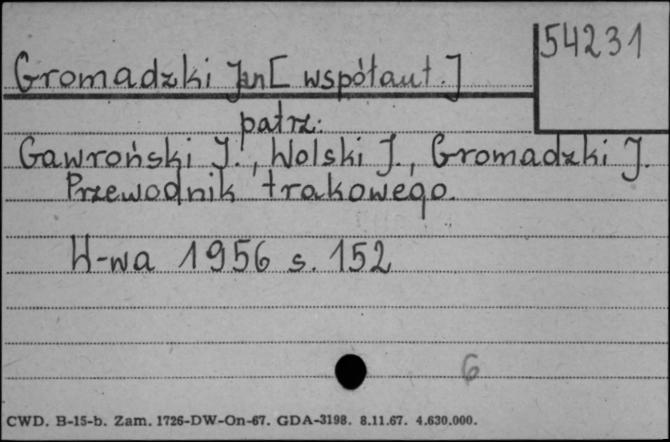 54231
Gromadzki Jan [współaut.]
patrz:
Gawroński J., Wolski J., Gromadzki J.
Przewodnik trakowego.
W-wa 1956 s. 152
6
CWD. B-15-b. Zam. 1726-DW-On-67. GDA-3198. 8.11.67. 4.630.000.